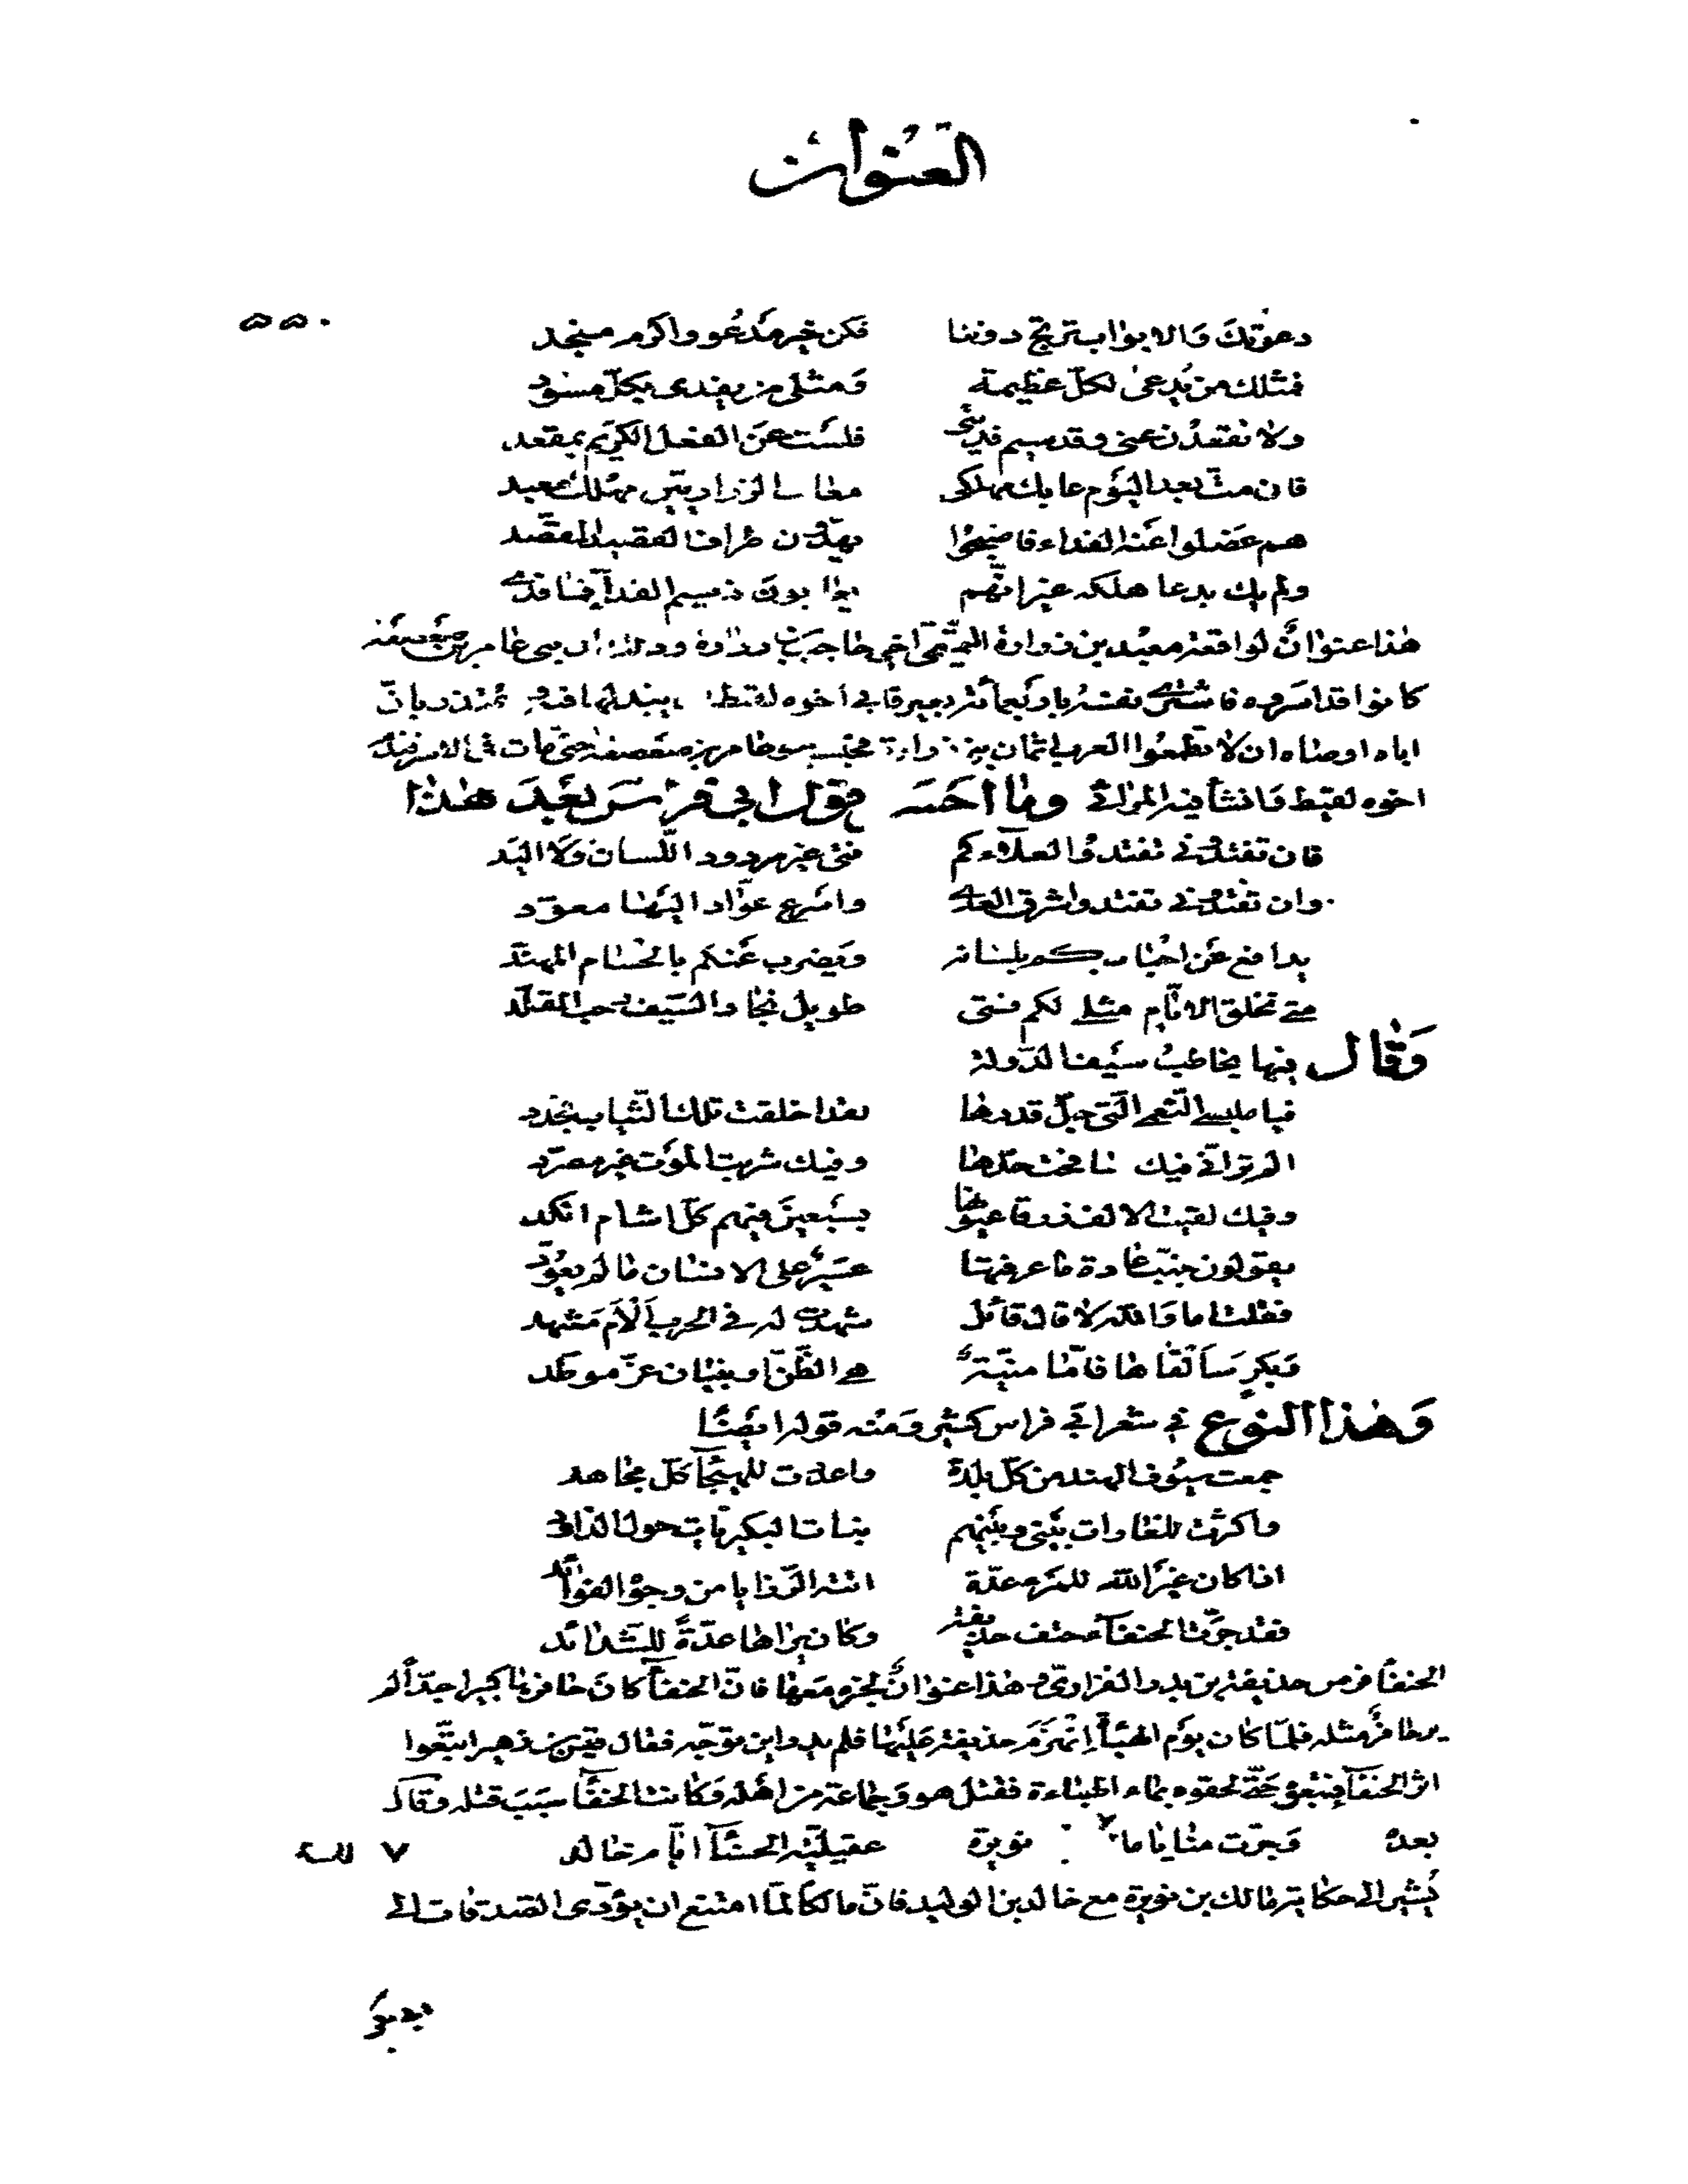 العنوان
٥٥٠
دعوتك والابواب ترتج دوننا فكن خير مدعو واكرم منجد
فمثلك من يدعى لكل عظيمة ومثلي من يفدى بكل مسود
ولا تقعدن عني وقد سيم فديتي فلست عن الفعل الكريم بمقعد
فان مت بعد اليوم عابك مهلكي معاب الزراريين مهلك معبد
هم عضلوا عنه الفداء فاصبحوا يهذّون طراف القصيد المقصد
ولم يك بدعا هلكه غير انهم يعابون اذ سيم الفدآء فما فدى
هذا عنوان لواقعة معبد بن زرارة التميمي اخي حاجب بن زرارة وذلك ان بني عامر بن صعصعة
كانوا قد اسروه فاشترى نفسه باربعمأئة بعير فابى اخوه لقيط ان يبذلها فيه واعتذر بان
اباه اوصاه ان لا تطعموا العرب اثمان بني زرارة فحبسه بنو عامر بن صعصعة حتى مات في الاسر فندم
اخوه لقيط وانشأ فيه المراثي وما احسن قول ابي فراس بعد هذا
فان تفتدوني تفتدوا لعلآءكم فتى غير مردود اللسان ولا اليد
وان تفتدوني تفتدوا شرق العدى واسرع عوّاد اليها معوّد
يدافع عن احسابكم بلسانه ويضرب عنكم بالحسام المهند
متى تخلق الايام مثلي لكم فتى طويل نجاد السيف رحب المقلد
وقال فيها يخاطب سيف الدولة
فيا ملبسي النعمى التي جلّ قدرها لقد اخلقت تلك الثياب فجدّد
الم تر اني فيك صافحت حدّها وفيك شربت الموت غير مصرّد
وفيك لقيت الالف زرقا عيونها بسبعين فيهم كل اشام انكد
يقولون جنّب عادة ما عرفتها عسير على الانسان ما لم يعوّد
فقلت اما والله لا قال قائل شهدت له في الحرب ألأم مشهد
ولكن سألقاها فامّا منيّة هي الظن او بنيان عزّ موطّد
وهذا النوع في شعر ابي فراس كثير ومنه قوله ايضًا
جمعت سيوف الهند من كل بلدة واعددت للهيجآ كل مجاهد
واكثرت للغارات بيني وبينهم بنات البكيريات حول المذاود
اذا كان غير الله للمرء عدّة اتته الرزايا من وجوه الفوائد
فقد جرّت الحنفآء حتف حذيفة وكان يراها عدّةً للشدائد
الحنفآ فرس حذيفة بن بدر الفزاري وهذا عنوان لخبره معها فان الحنفآ كان حافرها كبيرا جدّا لم
ير حافر مثله فلمّا كان يوم الهبآءة انهزم حذيفة عليها فلم يدر اين توجّه فقال قيس بن زهير اتبعوا
اثر الحنفآ فتبعوه حتى لحقوه بماء الهباءة فقتل هو وجماعة من اهله وكانت الحنفآ سبب قتله وقال
بعده وجرّت منايا مالك بن نويرة عقيلته الحسنآ ايّام خالد
يشير الى حكاية مالك بن نويرة مع خالد بن الوليد فان مالكا لمّا امتنع ان يؤدّى الصدقات الى